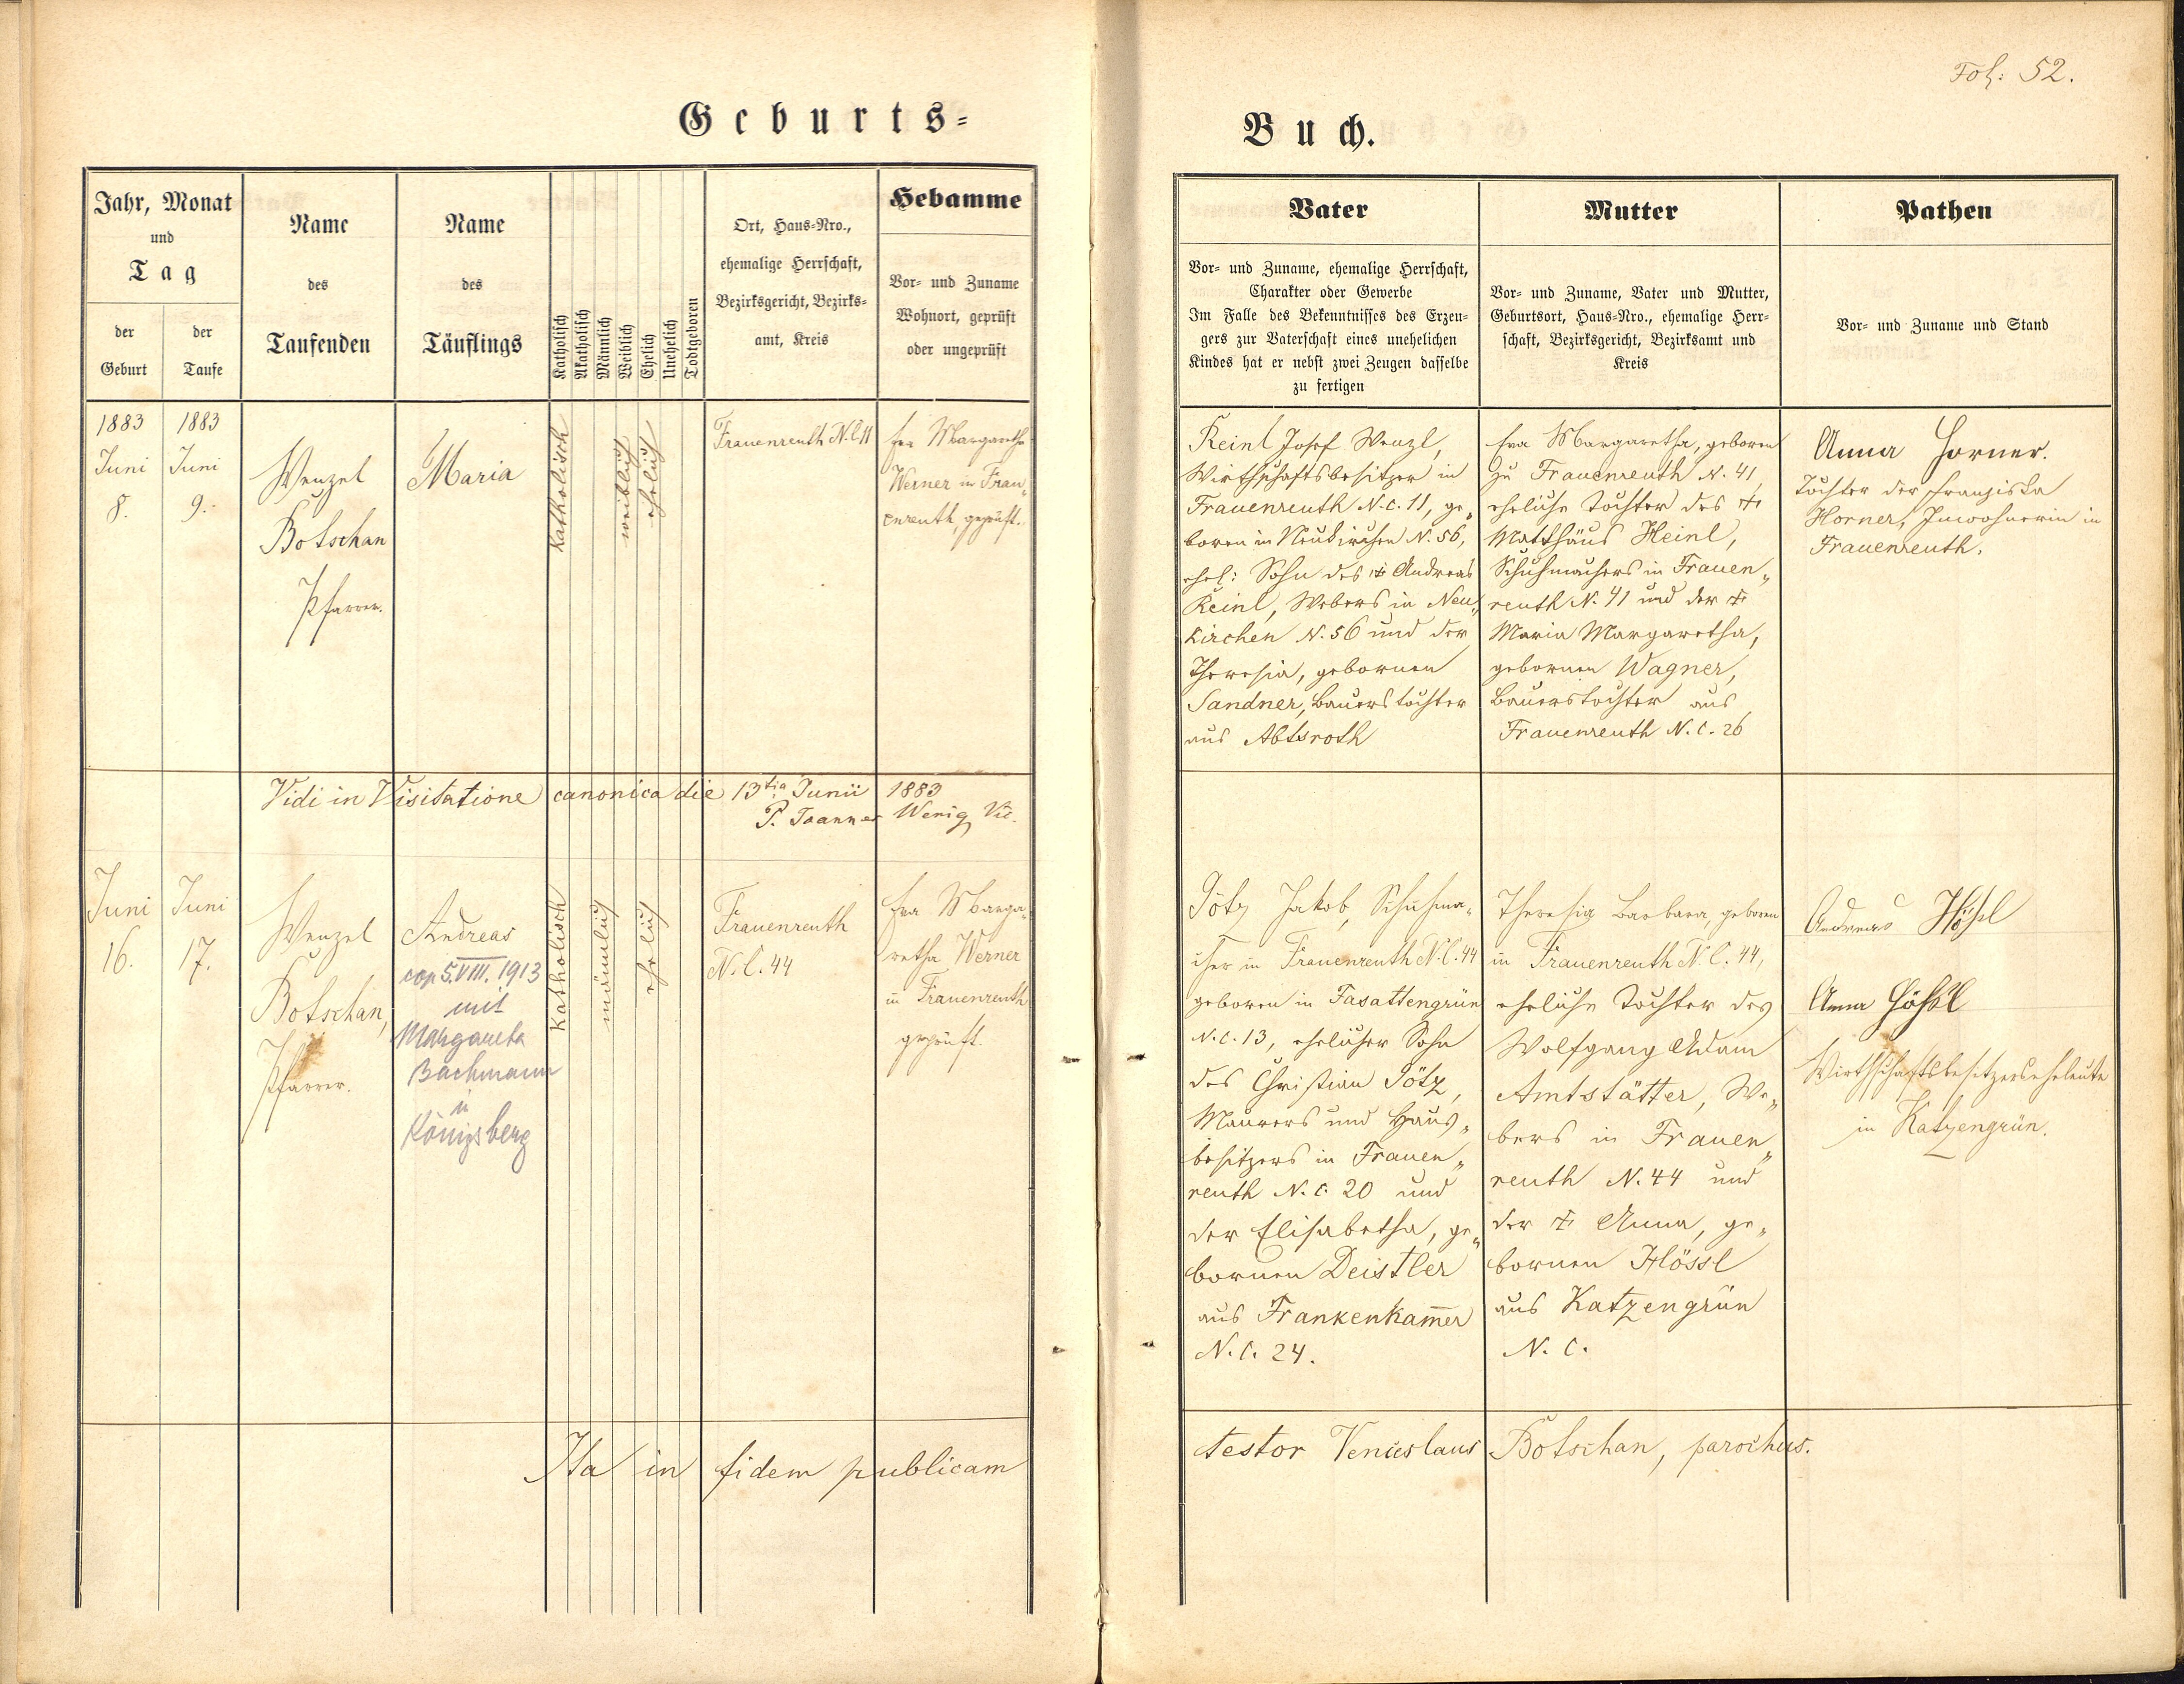 Fol: 52.
Geburts-
Buch.
Jahr, Monat
und
Tag
der
Geburt
der
Taufe
Name
des
Taufenden
Name
des
Täuflings
Katholisch
Akatholisch
Männlich
Weiblich
Ehelich
Unehelich
Todtgeboren
Ort, Haus-Nro.,
ehemalige Herrschaft,
Bezirksgericht, Bezirks-
amt, Kreis
Hebamme
Vor- und Zuname
Wohnort, geprüft
oder ungeprüft
Vater
Vor- und Zuname, ehemalige Herrschaft,
Charakter oder Gewerbe
Im Falle des Bekenntnisses des Erzeu-
gers zur Vaterschaft eines unehelichen
Kindes hat er nebst zwei Zeugen dasselbe
zu fertigen
Mutter
Vor- und Zuname, Vater und Mutter,
Geburtsort, Haus-Nro., ehemalige Herr-
schaft, Bezirksgericht, Bezirksamt und
Kreis
Pathen
Vor- und Zuname und Stand
1883
Juni
8.
1883
Juni
9.
Wenzel
Botschan
Pfarrer.
Maria
Katholisch
weiblich
ehelich
Frauenreuth N.C. 11
Eva Margaretha
Werner in Frau„
enreuth, geprüft.
Reinl Josef Wenzl,
Wirthschaftsbesitzer in
Frauenreuth N.C. 11, ge„
boren in Neukirchen N. 56,
ehel: Sohn des † Andreas
Reinl, Webers in Neu„
kirchen N. 56 und der
Theresia, gebornen
Sandner, Bauerstochter
aus Abtsroth
Eva Margaretha, geboren
zu Frauenreuth N. 41,
eheliche Tochter des †
Matthäus Heinl,
Schuhmachers in Frauen„
reuth N. 41 und der †
Maria Margaretha,
gebornen Wagner,
Bauerstochter aus
Frauenreuth N.C. 26
Anna Horner.
Tochter der Franziska
Horner, Inwohnerin in
Frauenreuth.
Vidi in Visitatione canonica die 13tia Junii 1883
P. Joannes Wenig Vic.
Juni
16.
Juni
17.
Wenzel
Botschan,
Pfarrer.
Andreas
cop 5.VIII. 1913
mit
Margareta
Bachmann
in
Königsberg
Katholisch
männlich
ehelich
Frauenreuth
N.C. 44
Eva Marga„
retha Werner
in Frauenreuth
geprüft.
Götz Jakob, Schuhma„
cher in Frauenreuth N.C. 44
geboren in Fasattengrün
N.C. 13, ehelicher Sohn
des Christian Götz,
Maurers und Haus„
besitzers in Frauen„
reuth N.C. 20 und
der Elisabetha, ge„
bornen Deistler
aus Frankenkam̅er
N.C. 24.
Theresia Barbara, geboren
in Frauenreuth N.C. 44,
eheliche Tochter des
Wolfgang Adam
Amtstätter, We„
bers in Frauen„
reuth N. 44 und
der † Anna, ge„
bornen Hössl
aus Katzengrün
N. C.
Andreas Hößl
Anna Hößl
Wirthschaftsbesitzerseheleute
in Katzengrün.
Ita in fidem publicam testor Venceslaus Botschan, parochus.